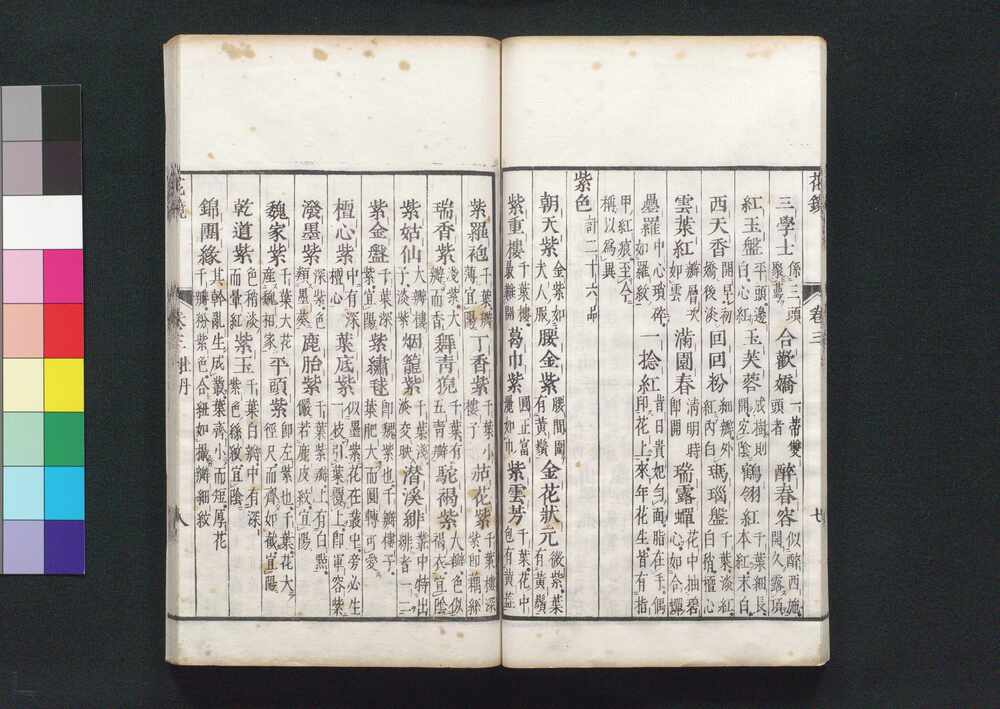 花鏡 卷三 七
三學士 係三頭聚萼 合歡嬌 一蒂雙頭者 醉春容 似醉西施開久露頂
紅玉盤 平頭邊白心紅 玉芙蓉 成樹則開宜陰 鶴翎紅 千葉細長本紅末白
西天香 開早初嬌後淡 回回粉 細瓣外紅內白 瑪瑙盤 千葉淡紅白稍檀心
雲葉紅 瓣層次如雲 滿園春 清明時即開 瑞露蟬 花中抽碧心如合蟬
疊羅 中心瑣碎如羅紋 一捻紅 昔日貴妃勻面脂在手偶印花上來年花生皆有指
甲紅痕至今稱以為異
紫色 計二十六品
朝天紫 金紫如夫人服 腰金紫 腰間圍有黃鬚 金花狀元 微紫葉有黃鬚
紫重樓 千葉樓最難開 葛巾紫 圓正富麗如巾 紫雲芳 千葉花中包有黃蕊
紫羅袍 千葉瓣薄宜陽 丁香紫 千葉小樓子 茄花紫 千葉樓深紫即藕絲
瑞香紫 淺紫大瓣而香 舞青猊 千葉有五青瓣 駝褐紫 大瓣色似褐衣宜陰
紫姑仙 大瓣樓子淡紫 烟籠紫 千葉淺淡交映 潛溪緋 叢中特出緋者一二
紫金盤 千葉深紫宜陽 紫繡毬 即魏紫也千瓣樓子葉肥大而圓轉可愛
檀心紫 中有深檀心 葉底紫 似墨紫花在叢中旁必生一枝引葉覆上即軍容紫
潑墨紫 深紫色類墨葵 鹿胎紫 千葉紫瓣上有白點儼若鹿皮紋宜陽
魏家紫 千葉大花產魏相家 平頭紫 即左紫也千葉花大徑尺而齊如截宜陽
乾道紫 色稍淡而暈紅 紫玉 千葉白瓣中有深紫色絲紋宜陰
錦團緣 其幹亂生成叢葉齊小而短厚花千瓣粉紫色合紐如撮瓣細紋
花鏡 卷三 牡丹 八